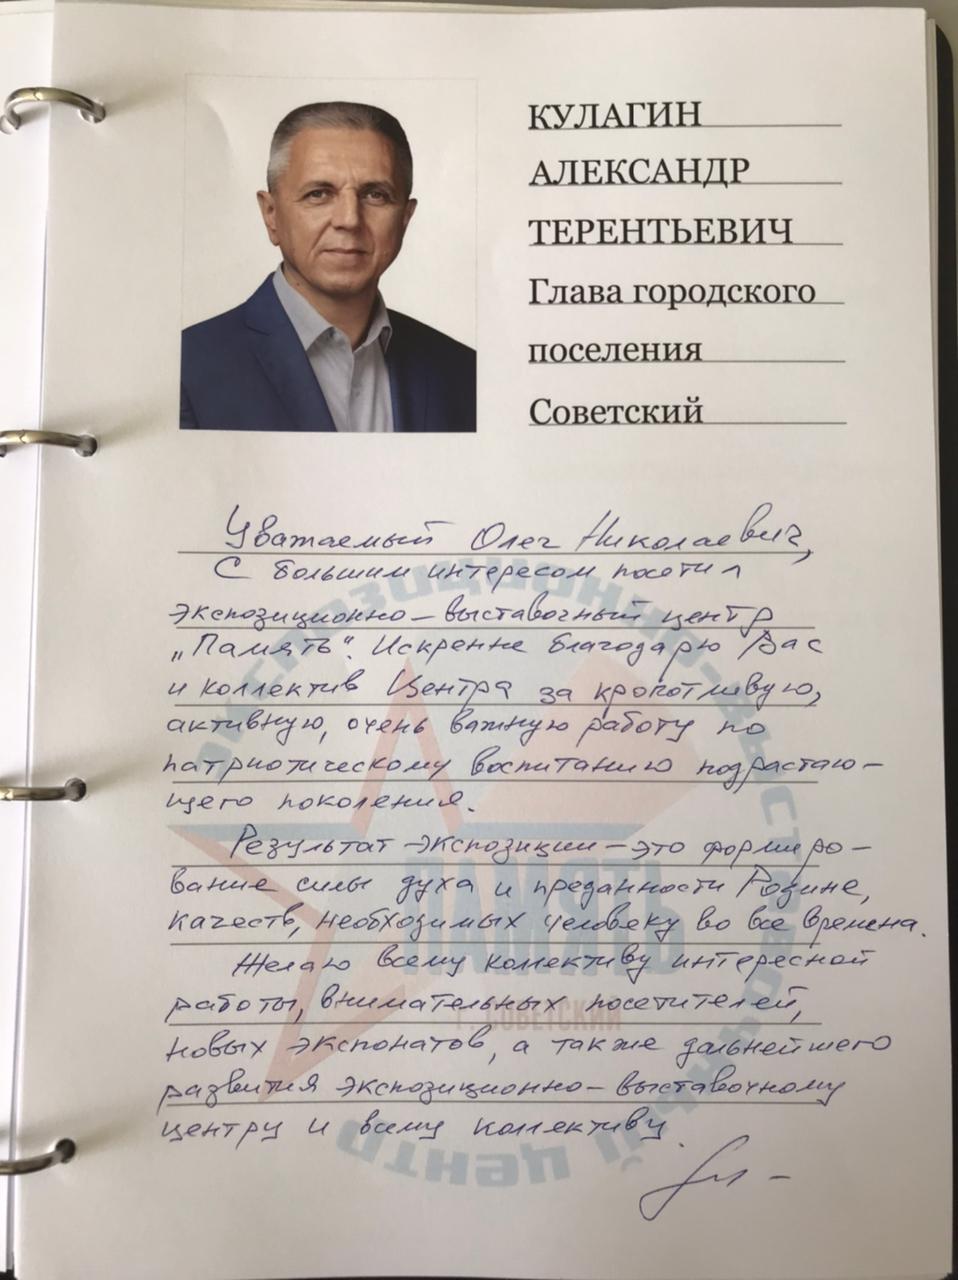 КУЛАГИН
АЛЕКСАНДР
ТЕРЕНТЬЕВИЧ
Глава городского
поселения
Советский
Уважаемый Олег Николаевич,
С большим интересом посетил
экспозиционно-выставочный центр
„Память". Искренне благодарю Вас
и коллектив Центра за кропотливую,
активную, очень важную работу по
патриотическому воспитанию подрастаю-
щего поколения.
Результат экспозиции - это формиро-
вание силы духа и преданности Родине,
качеств, необходимых человеку во все времена.
Желаю всему коллективу интересной
работы, внимательных посетителей,
новых экспонатов, а также дальнейшего
развития экспозиционно-выставочному
центру и всему коллективу.
экспозиционно-выставочный центр
ПАМЯТЬ
Г. СОВЕТСКИЙ